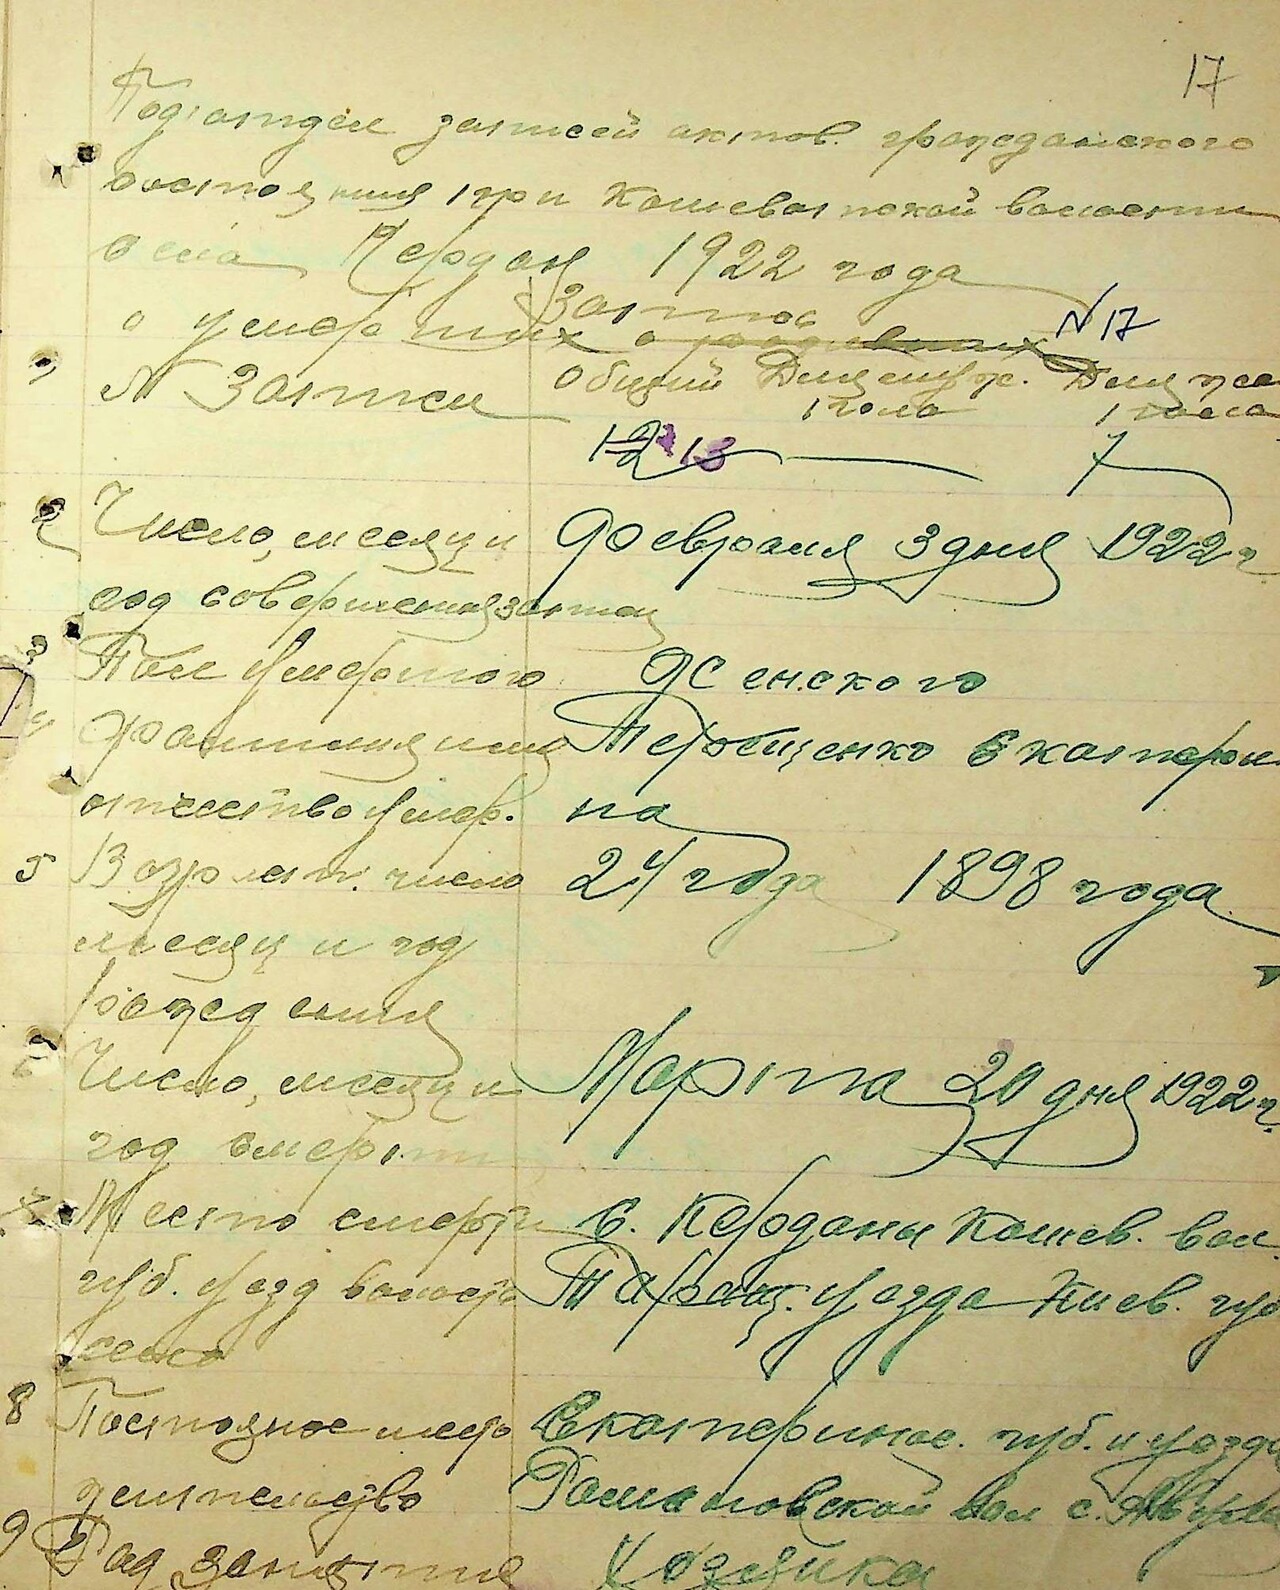 17
Подотдел записей актов гражданского
состояния при Кошеватской волости
села Кердан 1922 года
Запись
о умерших о родившихся № 17
1 № Записи Общий Для муж. Для жен
пола пола
12 13 7
2 Число, месяц и Февраля 3 дня 1922 г
год совершения записи
3 Пол умершого Женского
4 Фамилия имя Терещенко Екатери
отчество умер. на
5 Возраст. число 24 года 1898 года
месяц и год
рождения
6 Число, месяц и Марта 20 дня 1922 г.
год смерти
7 Место смерти с. Керданы Кошев. вол.
губ. уезд волость Таращ. уезда Киев. губ
село
8 Постоянное место Екатеринос. губ. и уезда
жительство Романовской вол с.
9 Род занятия Хозяйка